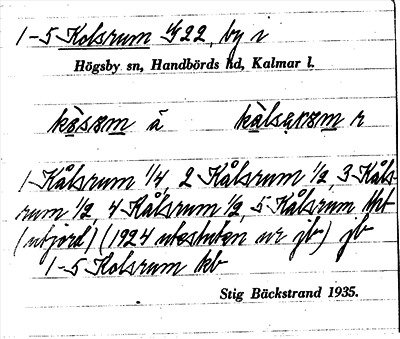 1-5 Kolsrum 4/22, by i
Högsby sn, Handbörds hd, Kalmar l.
kåsrm ä kålsarm r
1 Kålsrum 1/4, 2 Kålsrum 1/2, 3 Kåls-
rum 1/2, 4 Kålsrum 1/2, 5 Kålsrum
(utjord) (1924 utesluten ur jb) jb
1-5 Kolsrum kb
Stig Bäckstrand 1935.